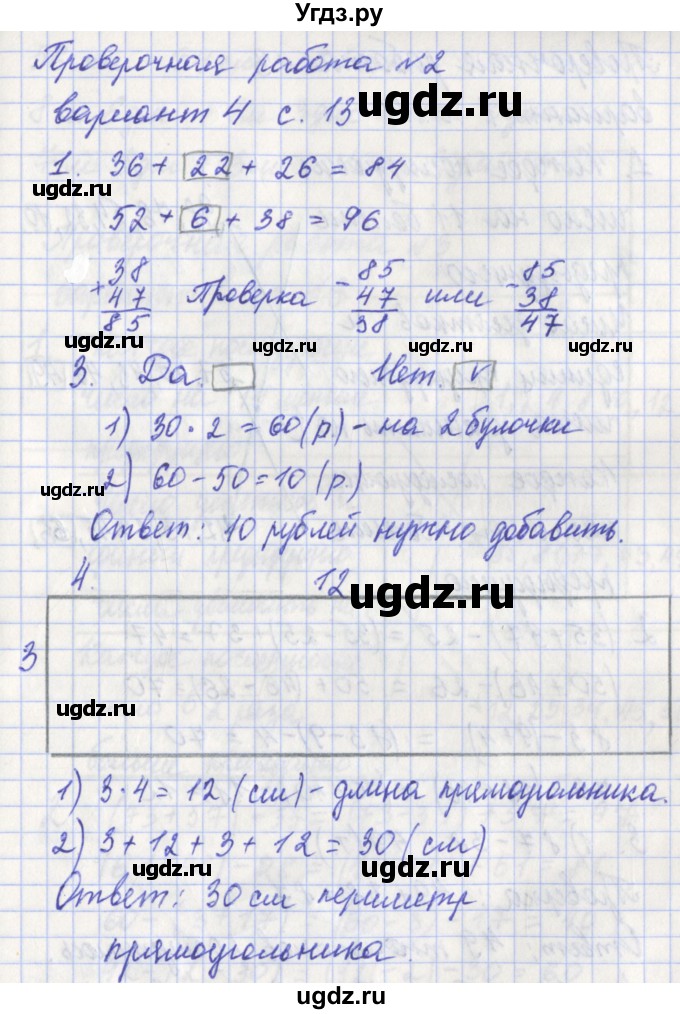 Угдз.ру
Проверочная работа №2
вариант 4 с. 13
ugdz.ru
1. 36 + 22 + 26 = 84
ugdz.ru
52 + 6 + 38 = 96
+ 38 47 85 Проверка - 85 47 38 или - 85 38 47
ugdz.ru ugdz.ru
3. Да. Нет. v
ugdz.ru
1) 30 · 2 = 60 (р.) - на 2 булочки
2) 60 - 50 = 10 (р.)
ugdz.ru
Ответ: 10 рублей нужно добавить.
4. 12
ugdz.ru
3
ugdz.ru
1) 3 · 4 = 12 (см) - длина прямоугольника.
2) 3 + 12 + 3 + 12 = 30 (см)
ugdz.ru ugdz.ru
Ответ: 30 см периметр
прямоугольника.
ugdz.ru
ugdz.ru